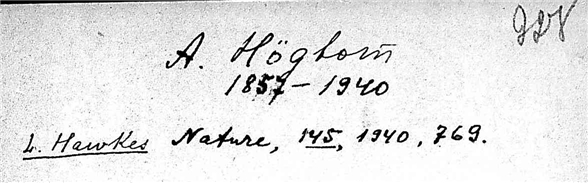 A. Högbom
1857-1940
L. Hawkes Nature, 145, 1940, 769.